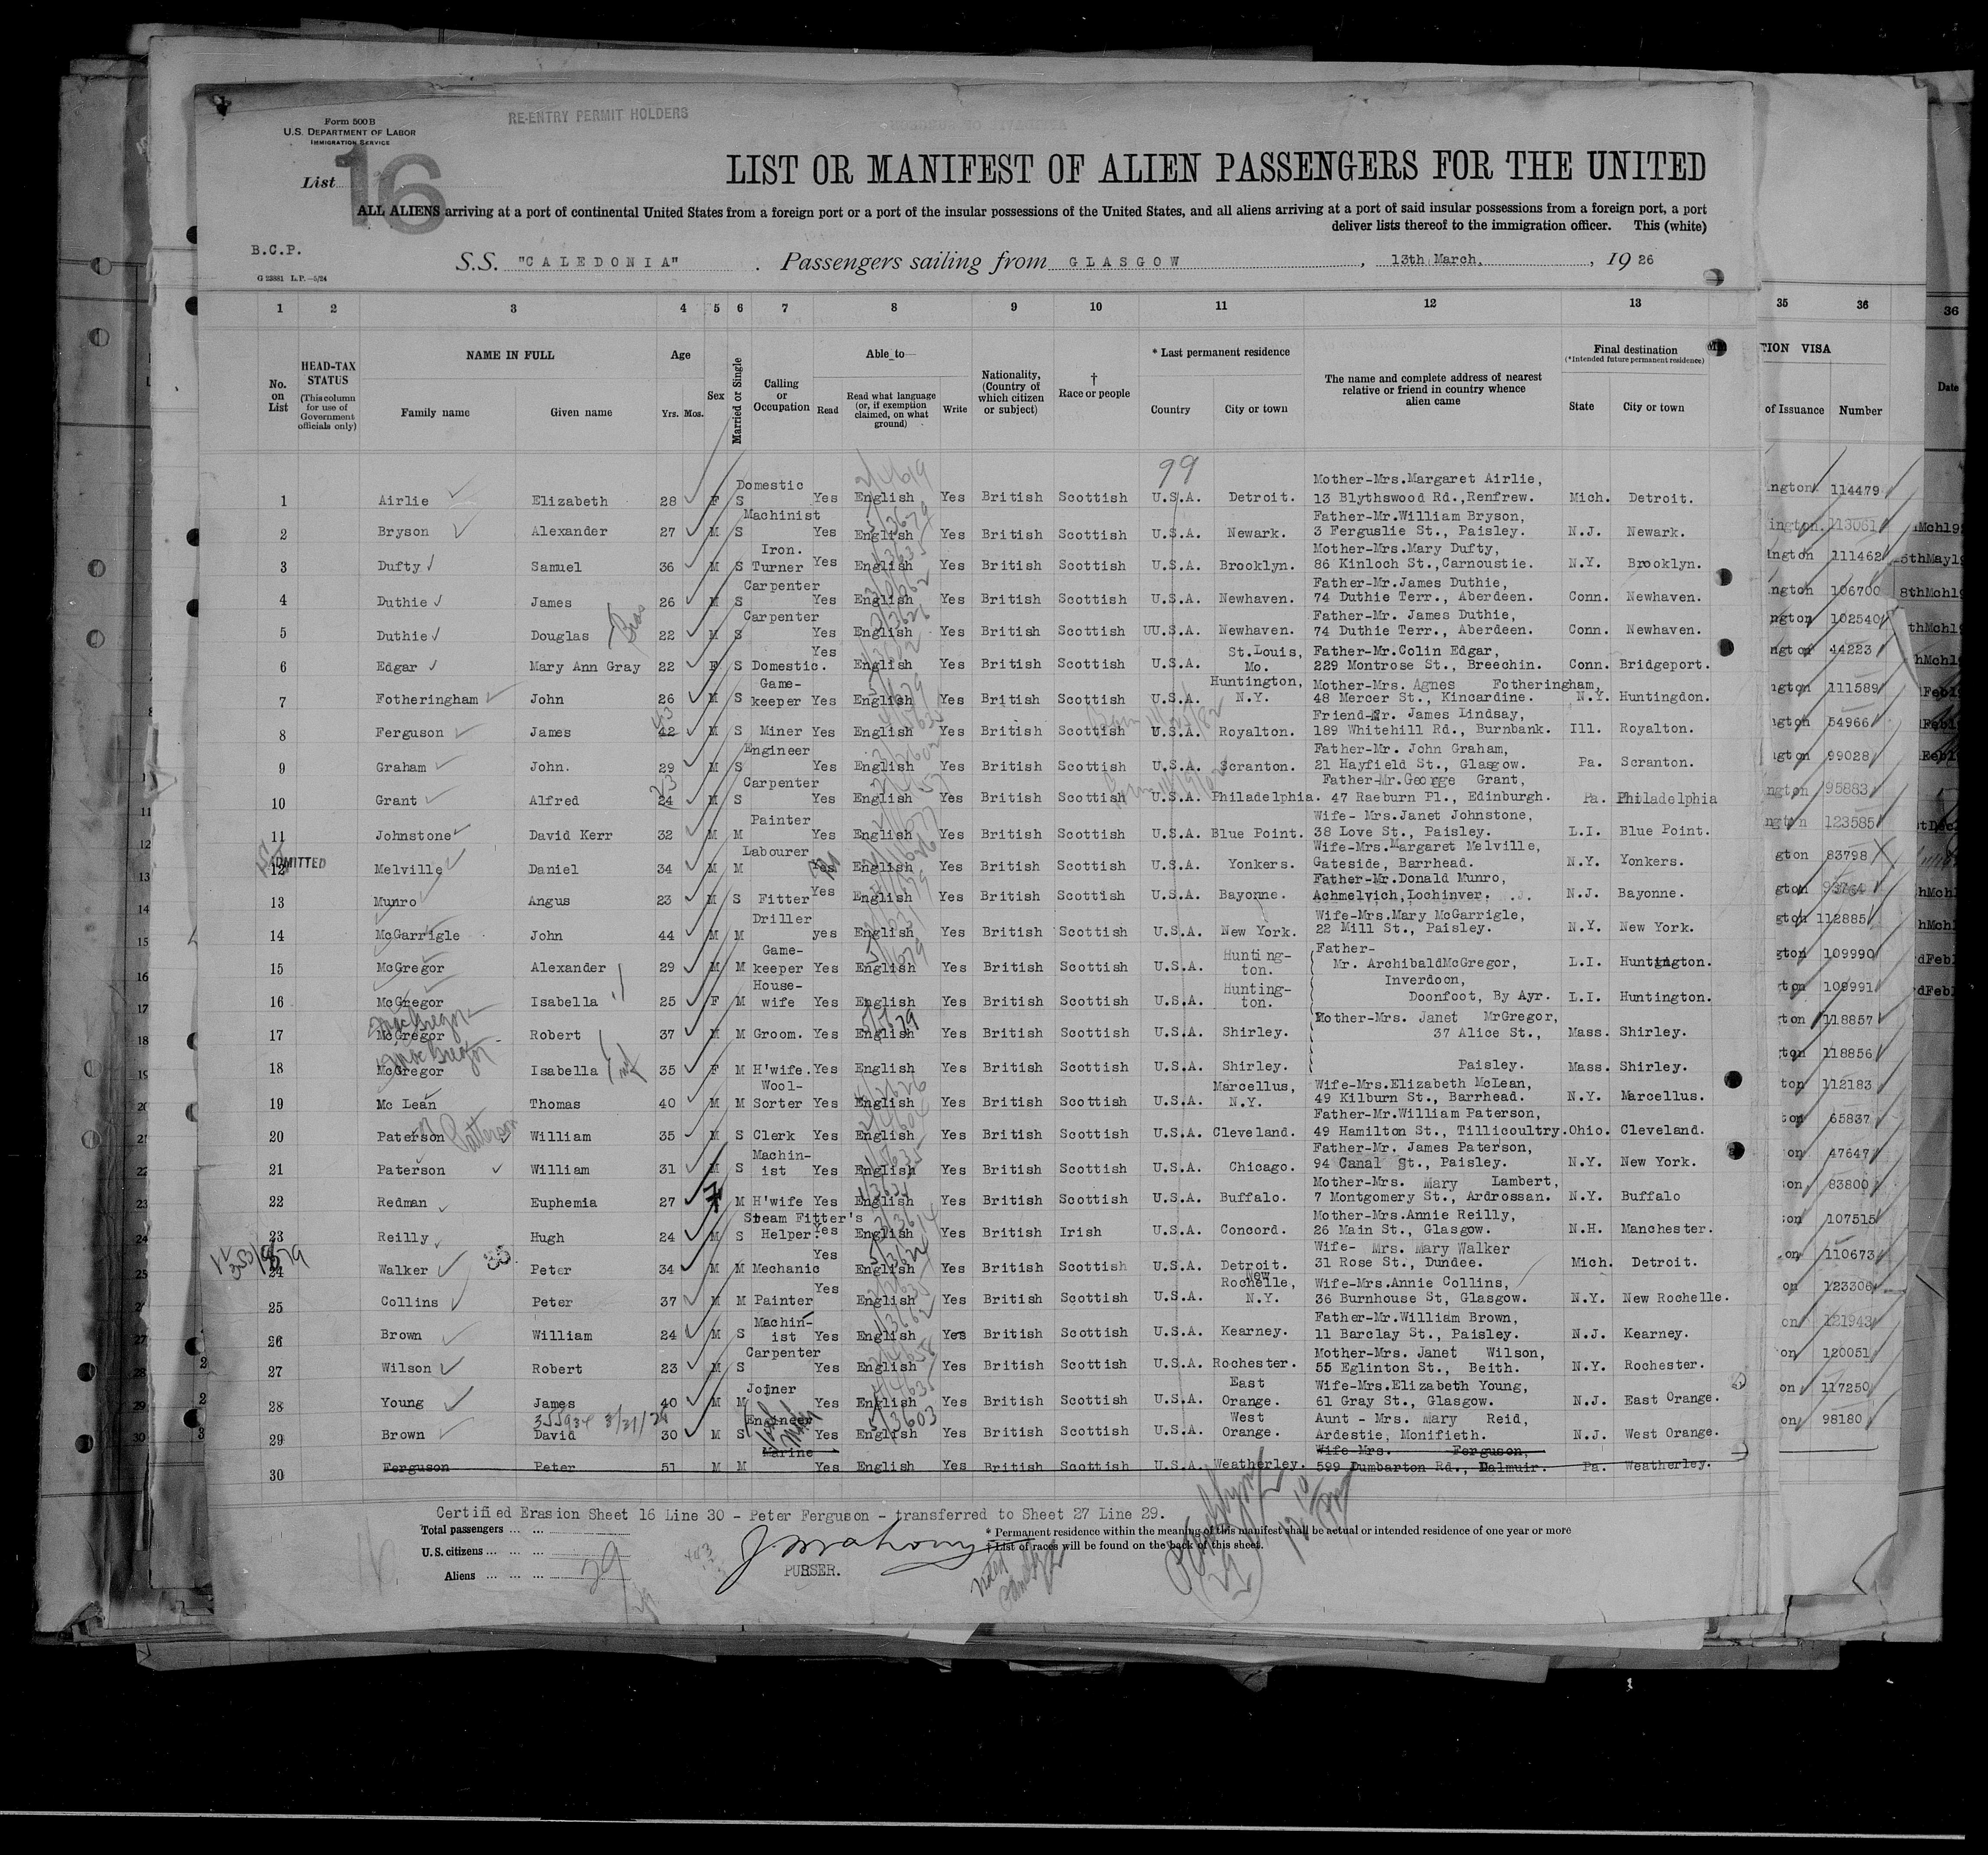 Form 500 B
U.S. DEPARTMENT OF LABOR
IMMIGRATION SERVICE
RE-ENTRY PERMIT HOLDERS
List 16
LIST OR MANIFEST OF ALIEN PASSENGERS FOR THE UNITED
ALL ALIENS arriving at a port of continental United States from a foreign port or a port of the insular possessions of the United States, and all aliens arriving at a port of said insular possessions from a foreign port, a port
deliver lists thereof to the immigration officer. This (white)
B.C.P.
G 23881 L.P.—5/24
S.S. "CALEDONIA". Passengers sailing from GLASGOW, 13th March, 1926
1 2 3 4 5 6 7 8 9 10 11 12 13 35 36 36
No. on List
HEAD-TAX STATUS (This column for use of Government officials only)
NAME IN FULL Family name Given name
Age Yrs. Mos.
Sex
Married or Single
Calling or Occupation
Able to— Read Read what language (or, if exemption claimed, on what ground) Write
Nationality, (Country of which citizen or subject)
† Race or people
* Last permanent residence Country City or town
The name and complete address of nearest relative or friend in country whence alien came
Final destination (*Intended future permanent residence) State City or town
TION VISA of Issuance Number Date
99
1 Airlie Elizabeth 28 F S Domestic Yes English Yes British Scottish U.S.A. Detroit. Mother-Mrs.Margaret Airlie, 13 Blythswood Rd.,Renfrew. Mich. Detroit. ington 114479
2 Bryson Alexander 27 M S Machinist Yes English Yes British Scottish U.S.A. Newark. Father-Mr.William Bryson, 3 Ferguslie St., Paisley. N.J. Newark. ington. 113061
3 Dufty Samuel 36 M S Iron. Turner Yes English Yes British Scottish U.S.A. Brooklyn. Mother-Mrs.Mary Dufty, 86 Kinloch St.,Carnoustie. N.Y. Brooklyn. ington 111462
4 Duthie James 26 M S Carpenter Yes English Yes British Scottish U.S.A. Newhaven. Father-Mr.James Duthie, 74 Duthie Terr., Aberdeen. Conn. Newhaven. ngton 106700
5 Duthie Douglas 22 M S Carpenter Yes English Yes British Scottish UU.S.A. Newhaven. Father-Mr. James Duthie, 74 Duthie Terr., Aberdeen. Conn. Newhaven. ngton 102540
6 Edgar Mary Ann Gray 22 F S Domestic. Yes English Yes British Scottish U.S.A. St.Louis, Mo. Father-Mr.Colin Edgar, 229 Montrose St., Breechin. Conn. Bridgeport. ngton 44223
7 Fotheringham John 26 M S Game-keeper Yes English Yes British Scottish U.S.A. Huntington, N.Y. Mother-Mrs. Agnes Fotheringham, 48 Mercer St., Kincardine. N.Y. Huntingdon. ngton 111589
8 Ferguson James 42 43 M S Miner Yes English Yes British Scottish U.S.A. Royalton. Friend-Mr. James Lindsay, 189 Whitehill Rd., Burnbank. Ill. Royalton. ngton 54966
9 Graham John. 29 M S Engineer Yes English Yes British Scottish U.S.A. Scranton. Father-Mr. John Graham, 21 Hayfield St., Glasgow. Pa. Scranton. ngton 99028
10 Grant Alfred 24 23 M S Carpenter Yes English Yes British Scottish U.S.A. Philadelphia. Father-Mr.George Grant, 47 Raeburn Pl., Edinburgh. Pa. Philadelphia ngton 95883
11 Johnstone David Kerr 32 M M Painter Yes English Yes British Scottish U.S.A. Blue Point. Wife- Mrs.Janet Johnstone, 38 Love St., Paisley. L.I. Blue Point. ngton 123585
ADMITTED
12 Melville Daniel 34 M M Labourer Yes English Yes British Scottish U.S.A. Yonkers. Wife-Mrs.Margaret Melville, Gateside, Barrhead. N.Y. Yonkers. gton 83798
13 Munro Angus 23 M S Fitter Yes English Yes British Scottish U.S.A. Bayonne. Father-Mr.Donald Munro, Achmelvich,Lochinver. N.J. Bayonne. gton
14 McGarrigle John 44 M M Driller yes English Yes British Scottish U.S.A. New York. Wife-Mrs.Mary McGarrigle, 22 Mill St., Paisley. N.Y. New York. gton 112885
15 McGregor Alexander 29 M M Game-keeper Yes English Yes British Scottish U.S.A. Hunting-ton. Father- Mr. ArchibaldMcGregor, L.I. Huntington. gton 109990
16 McGregor Isabella 25 F M House-wife Yes English Yes British Scottish U.S.A. Hunting-ton. Inverdoon, Doonfoot, By Ayr. L.I. Huntington. gton 109991
MacGregor
17 McGregor Robert 37 M M Groom. Yes English Yes British Scottish U.S.A. Shirley. Mother-Mrs. Janet MrGregor, 37 Alice St., Mass. Shirley. gton 118857
MacGregor
18 McGregor Isabella 35 F M H'wife. Yes English Yes British Scottish U.S.A. Shirley. Paisley. Mass. Shirley. ton 118856
19 Mc Lean Thomas 40 M M Wool-Sorter Yes English Yes British Scottish U.S.A. Marcellus, N.Y. Wife-Mrs.Elizabeth McLean, 49 Kilburn St., Barrhead. N.Y. Marcellus. ton 112183
20 Paterson Patterson William 35 M S Clerk Yes English Yes British Scottish U.S.A. Cleveland. Father-Mr.William Paterson, 49 Hamilton St., Tillicoultry. Ohio. Cleveland. ton 65837
21 Paterson William 31 M S Machin-ist Yes English Yes British Scottish U.S.A. Chicago. Father-Mr. James Paterson, 94 Canal St., Paisley. N.Y. New York. on 47647
22 Redman Euphemia 27 F M H'wife Yes English Yes British Scottish U.S.A. Buffalo. Mother-Mrs. Mary Lambert, 7 Montgomery St., Ardrossan. N.Y. Buffalo on 83800
23 Reilly Hugh 24 M S Steam Fitter's Helper. Yes English Yes British Irish U.S.A. Concord. Mother-Mrs.Annie Reilly, 26 Main St., Glasgow. N.H. Manchester. on 107515
24 Walker 35 Peter 34 M M Mechanic Yes English Yes British Scottish U.S.A. Detroit. Wife- Mrs. Mary Walker 31 Rose St., Dundee. Mich. Detroit. on 110673
25 Collins Peter 37 M M Painter Yes English Yes British Scottish U.S.A. New Rochelle, N.Y. Wife-Mrs.Annie Collins, 36 Burnhouse St, Glasgow. N.Y. New Rochelle. on 123306
26 Brown William 24 M S Machin-ist Yes English Yes British Scottish U.S.A. Kearney. Father-Mr.William Brown, 11 Barclay St., Paisley. N.J. Kearney. on 121943
27 Wilson Robert 23 M S Carpenter Yes English Yes British Scottish U.S.A. Rochester. Mother-Mrs. Janet Wilson, 55 Eglinton St., Beith. N.Y. Rochester. on 120051
28 Young James 40 M M Joiner Yes English Yes British Scottish U.S.A. East Orange. Wife-Mrs.Elizabeth Young, 61 Gray St., Glasgow. N.J. East Orange. on 117250
29 Brown David 30 M S Engineer Yes English Yes British Scottish U.S.A. West Orange. Aunt - Mrs. Mary Reid, Ardestie, Monifieth. N.J. West Orange. on 98180
30 Ferguson Peter 51 M M Marine Yes English Yes British Scottish U.S.A. Weatherley. Wife Mrs. Ferguson, 599 Dumbarton Rd., Dalmuir. Pa. Weatherley.
Certified Erasion Sheet 16 Line 30 - Peter Ferguson - transferred to Sheet 27 Line 29.
Total passengers ... ...
U.S. citizens ... ... ...
Aliens ... ... ... 29
PURSER.
* Permanent residence within the meaning of this manifest shall be actual or intended residence of one year or more
† List of races will be found on the back of this sheet.